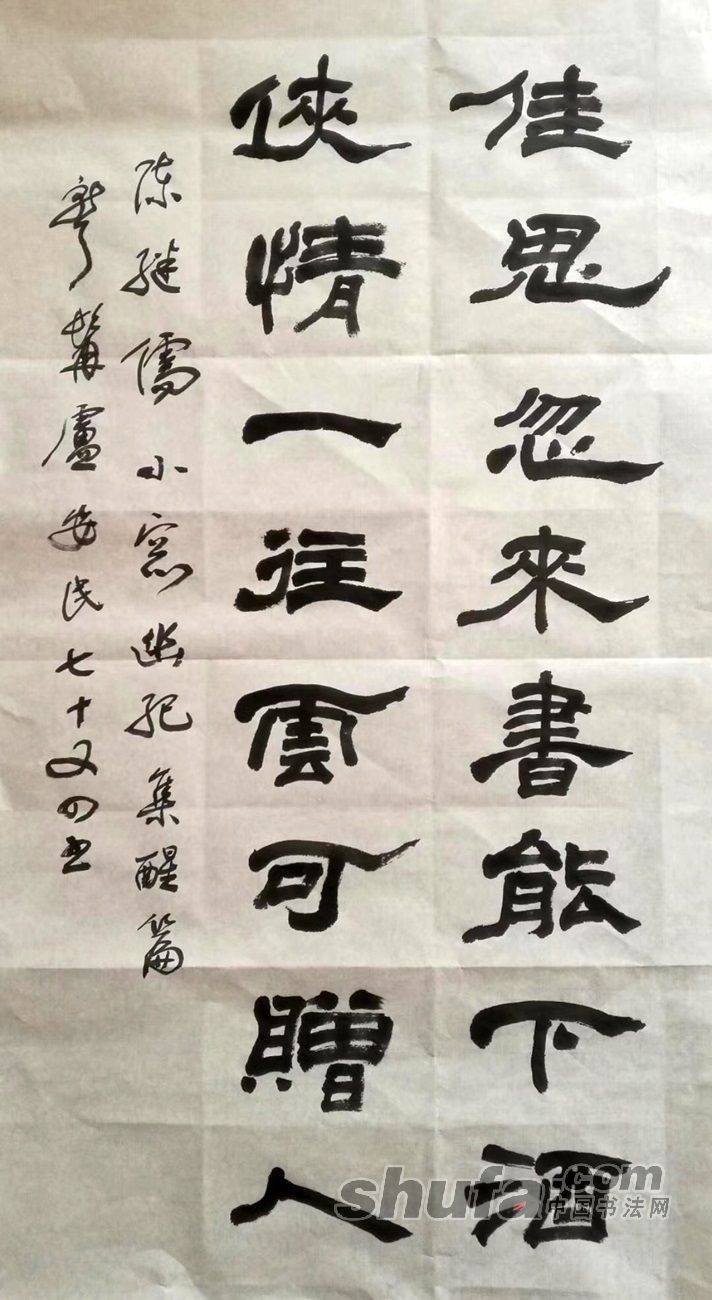 佳思忽來書能下酒
俠情一往雲可贈人
陳繼儒小窓幽記集醒篇
盧安民七十又四書
shufa.com
中国书法网